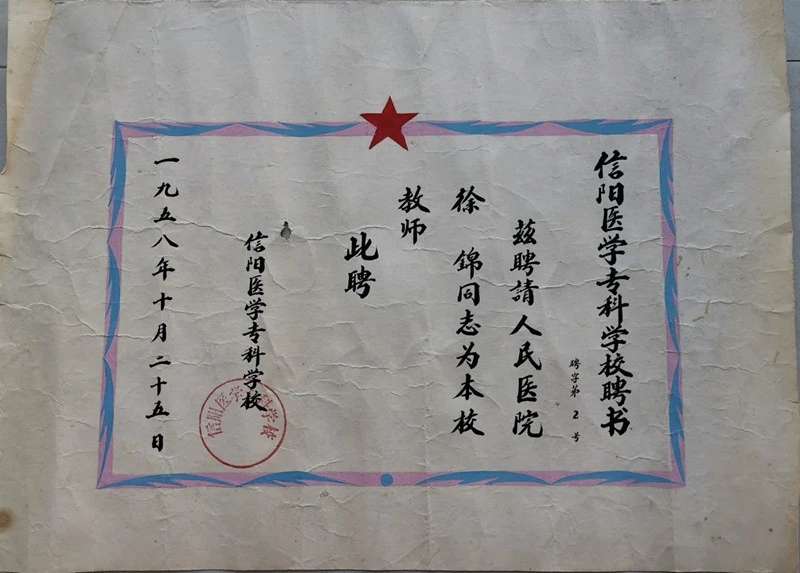 信阳医学专科学校聘书
聘字第 2 号
兹聘請人民医院
徐 錦同志为本校
教师
此聘
信阳医学专科学校
一九五八年十月二十五日
信阳医学专科学校